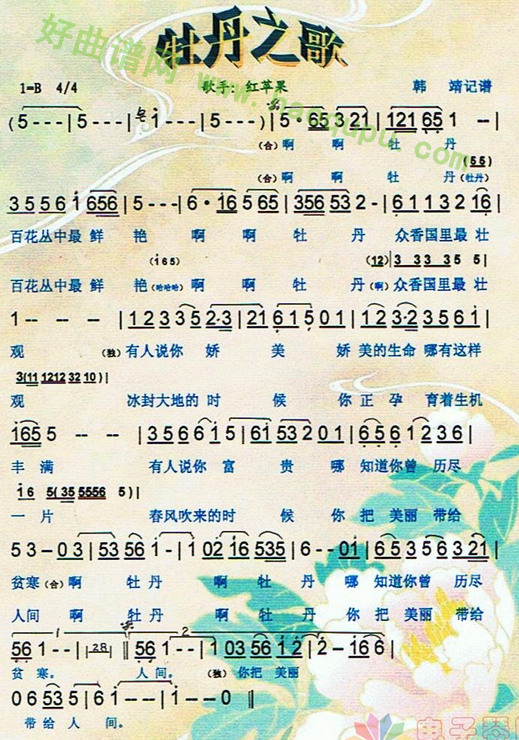 好曲谱网
牡丹之歌
1=B 4/4 歌手：红苹果 韩 靖记谱
(5 - - - | 5 - - - | 5 - - - | 5 - - -) | 5· 65 3 21 | 121 65 1 - - |
(合) 啊 啊 牡 丹
(55)
(合) 啊 啊 牡 丹 (牡丹)
3 5 5 6 1 656 | 5 - - - | 6 · 16 5 65 | 356 53 2 - | 6 1 1 3 2 16 |
百花丛中最 鲜 艳 啊 啊 牡 丹 众香国里最 壮
(165) (12) 3 33 35 5 |
百花丛中最 鲜 艳 (哈哈哈) 啊 啊 牡 丹 (啊) 众香国里最 壮
1 -- -- -- | 1 2 3 3 5 2·3 | 2 1 6 1 5 0 1 | 1 2 3·2 3 5 6 |
观 (独) 有人说你 娇 美 娇 美的生命 哪有这样
3(11 1212 32 10) |
观 冰封大地的 时 候 你 正 孕 育着生机
165 5 -- -- | 3 5 6 6 1 5 | 61 53 2 0 1 | 6 5 6 1 3 5 |
丰 满 有人说你 富 贵 哪 知道你曾 历尽
1 6 5(35 5556 5) |
一 片 春风吹来的时 候 你 把 美丽 带给
5 3 - 0 3 | 53 56 1 - | 1 02 16 535 | 6 - -01 | 6 5 3 5 6 3 21 |
贫寒 (合) 啊 牡 丹 啊 牡 丹 哪 知道你曾 历尽
人间 啊 牡 丹 啊 牡 丹 你 把 美丽 带给
56 1 - - | 28 | 56 1 - - | 1 03 56 1 2 | 2 - - 1 6 6 |
贫 寒。 人 间。 (独) 你把 美丽
0 6 53 5 | 6 1 - - | 1 - - 0 ‖
带 给 人 间。